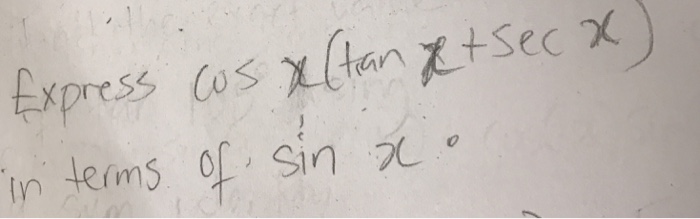 Express cos x(tan x+sec x)
in terms of sin x.